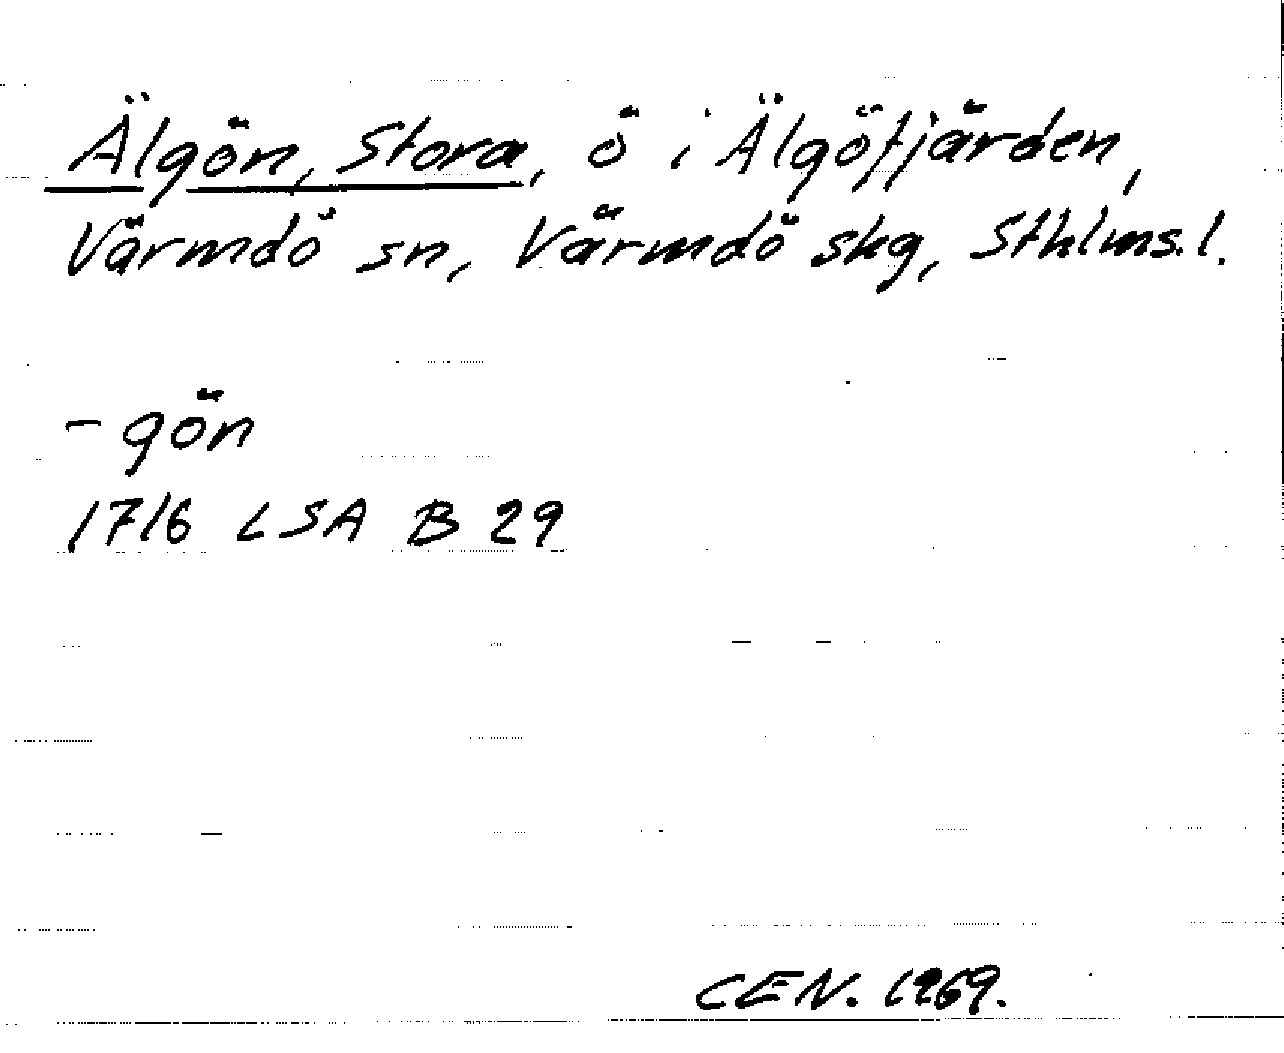 Älgön, Stora, ö i Älgöfjärden,
Värmdö sn, Värmdö skg, Sthlms.l.
- gön
1716 LSA B 29
CEN. 1969.